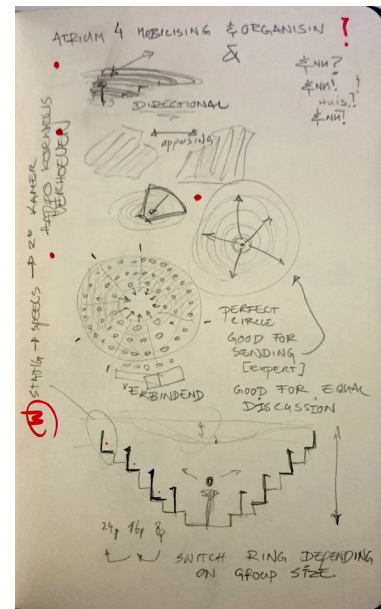 ATRIUM 4 MOBILISING & ORGANISIN !
&
& NU?
& NU!
HUIS!!
& NU!
DIRECTIONAL
opposing
STATIG → SPEELS → 2e KAMER
VERHOEVEN
PERFECT
CIRCLE
GOOD FOR
SENDING
[EXPERT]
VERBINDEND
GOOD FOR EQUAL
DISCUSSION
24p 16p 8p
SWITCH RING DEPENDING
ON GROUP SIZE.